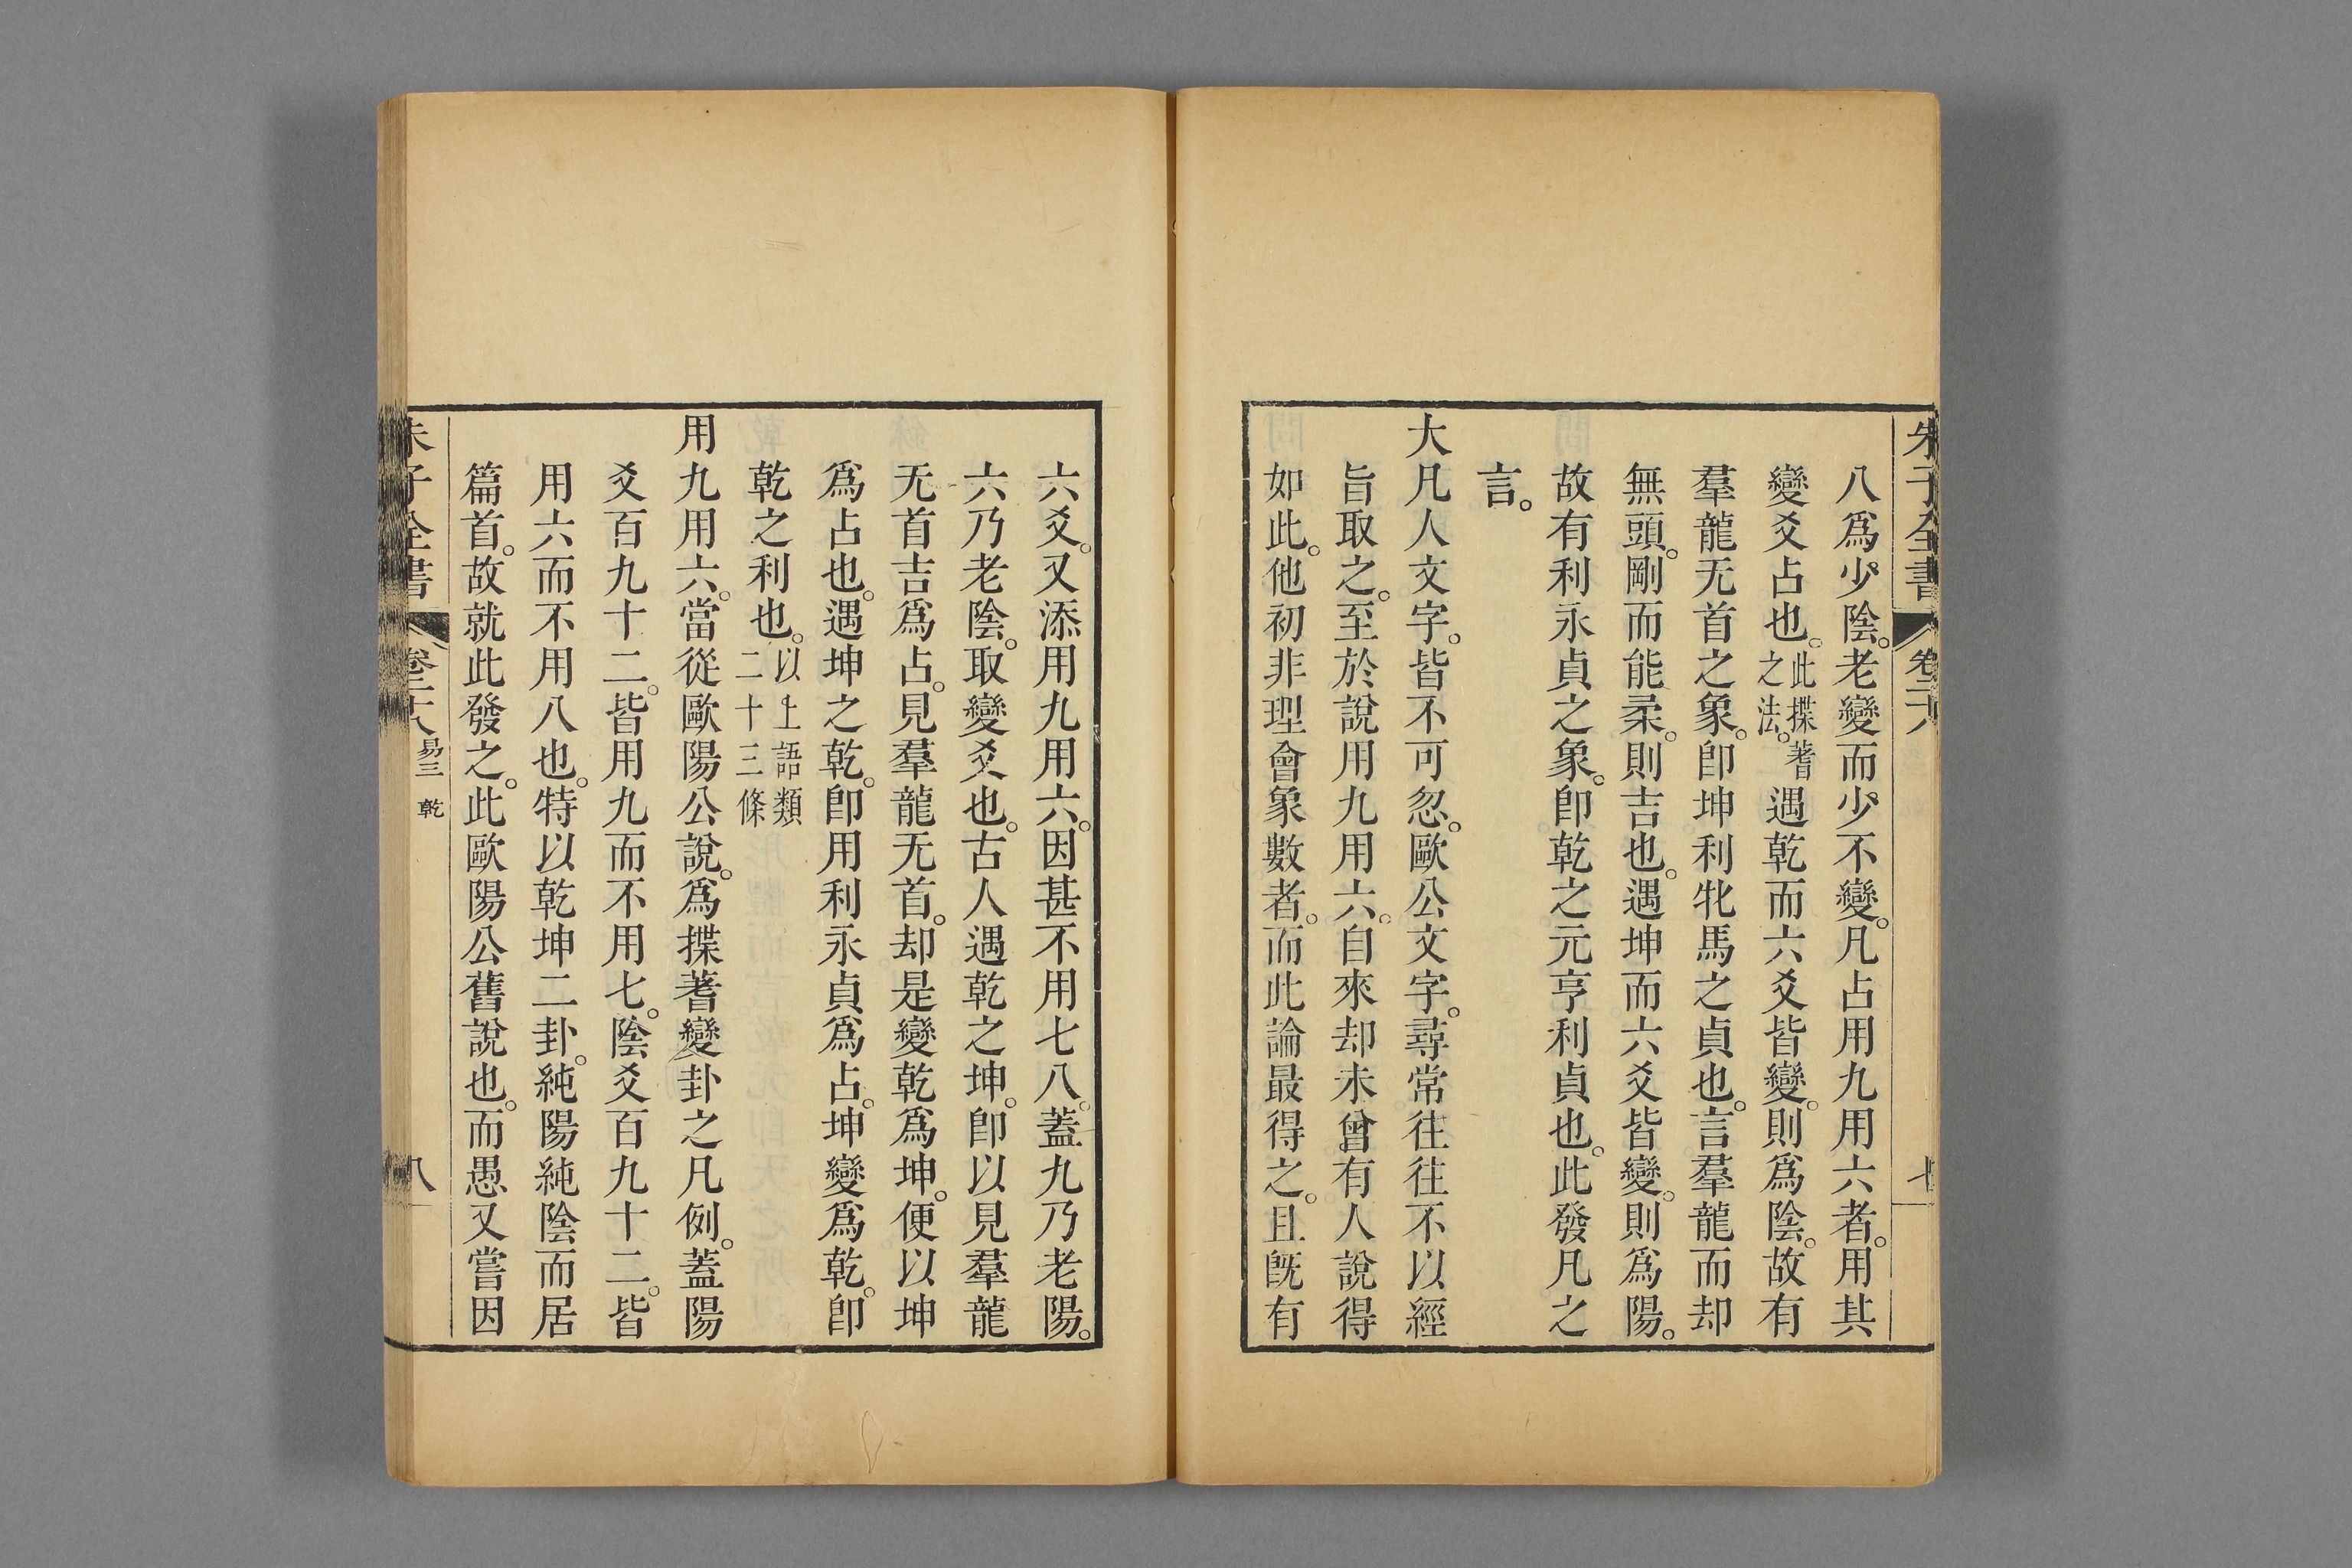 朱子全書 卷二十八 七
八爲少陰。老變而少不變。凡占用九用六者。用其
變爻占也。此揲蓍之法。遇乾而六爻皆變。則爲陰。故有
羣龍无首之象。卽坤利牝馬之貞也。言羣龍而却
無頭。剛而能柔。則吉也。遇坤而六爻皆變。則爲陽。
故有利永貞之象。卽乾之元亨利貞也。此發凡之
言。
大凡人文字。皆不可忽。歐公文字。尋常往往不以經
旨取之。至於說用九用六。自來却未曾有人說得
如此。他初非理會象數者。而此論最得之。且旣有
六爻。又添用九用六。因甚不用七八。蓋九乃老陽。
六乃老陰。取變爻也。古人遇乾之坤。卽以見羣龍
无首吉爲占。見羣龍无首。却是變乾爲坤。便以坤
爲占也。遇坤之乾。卽用利永貞爲占。坤變爲乾。卽
乾之利也。以上語類二十三條
用九用六。當從歐陽公說。爲揲蓍變卦之凡例。蓋陽
爻百九十二。皆用九而不用七。陰爻百九十二。皆
用六而不用八也。特以乾坤二卦。純陽純陰而居
篇首。故就此發之。此歐陽公舊說也。而愚又嘗因
朱子全書 卷二十八 易三 乾 八